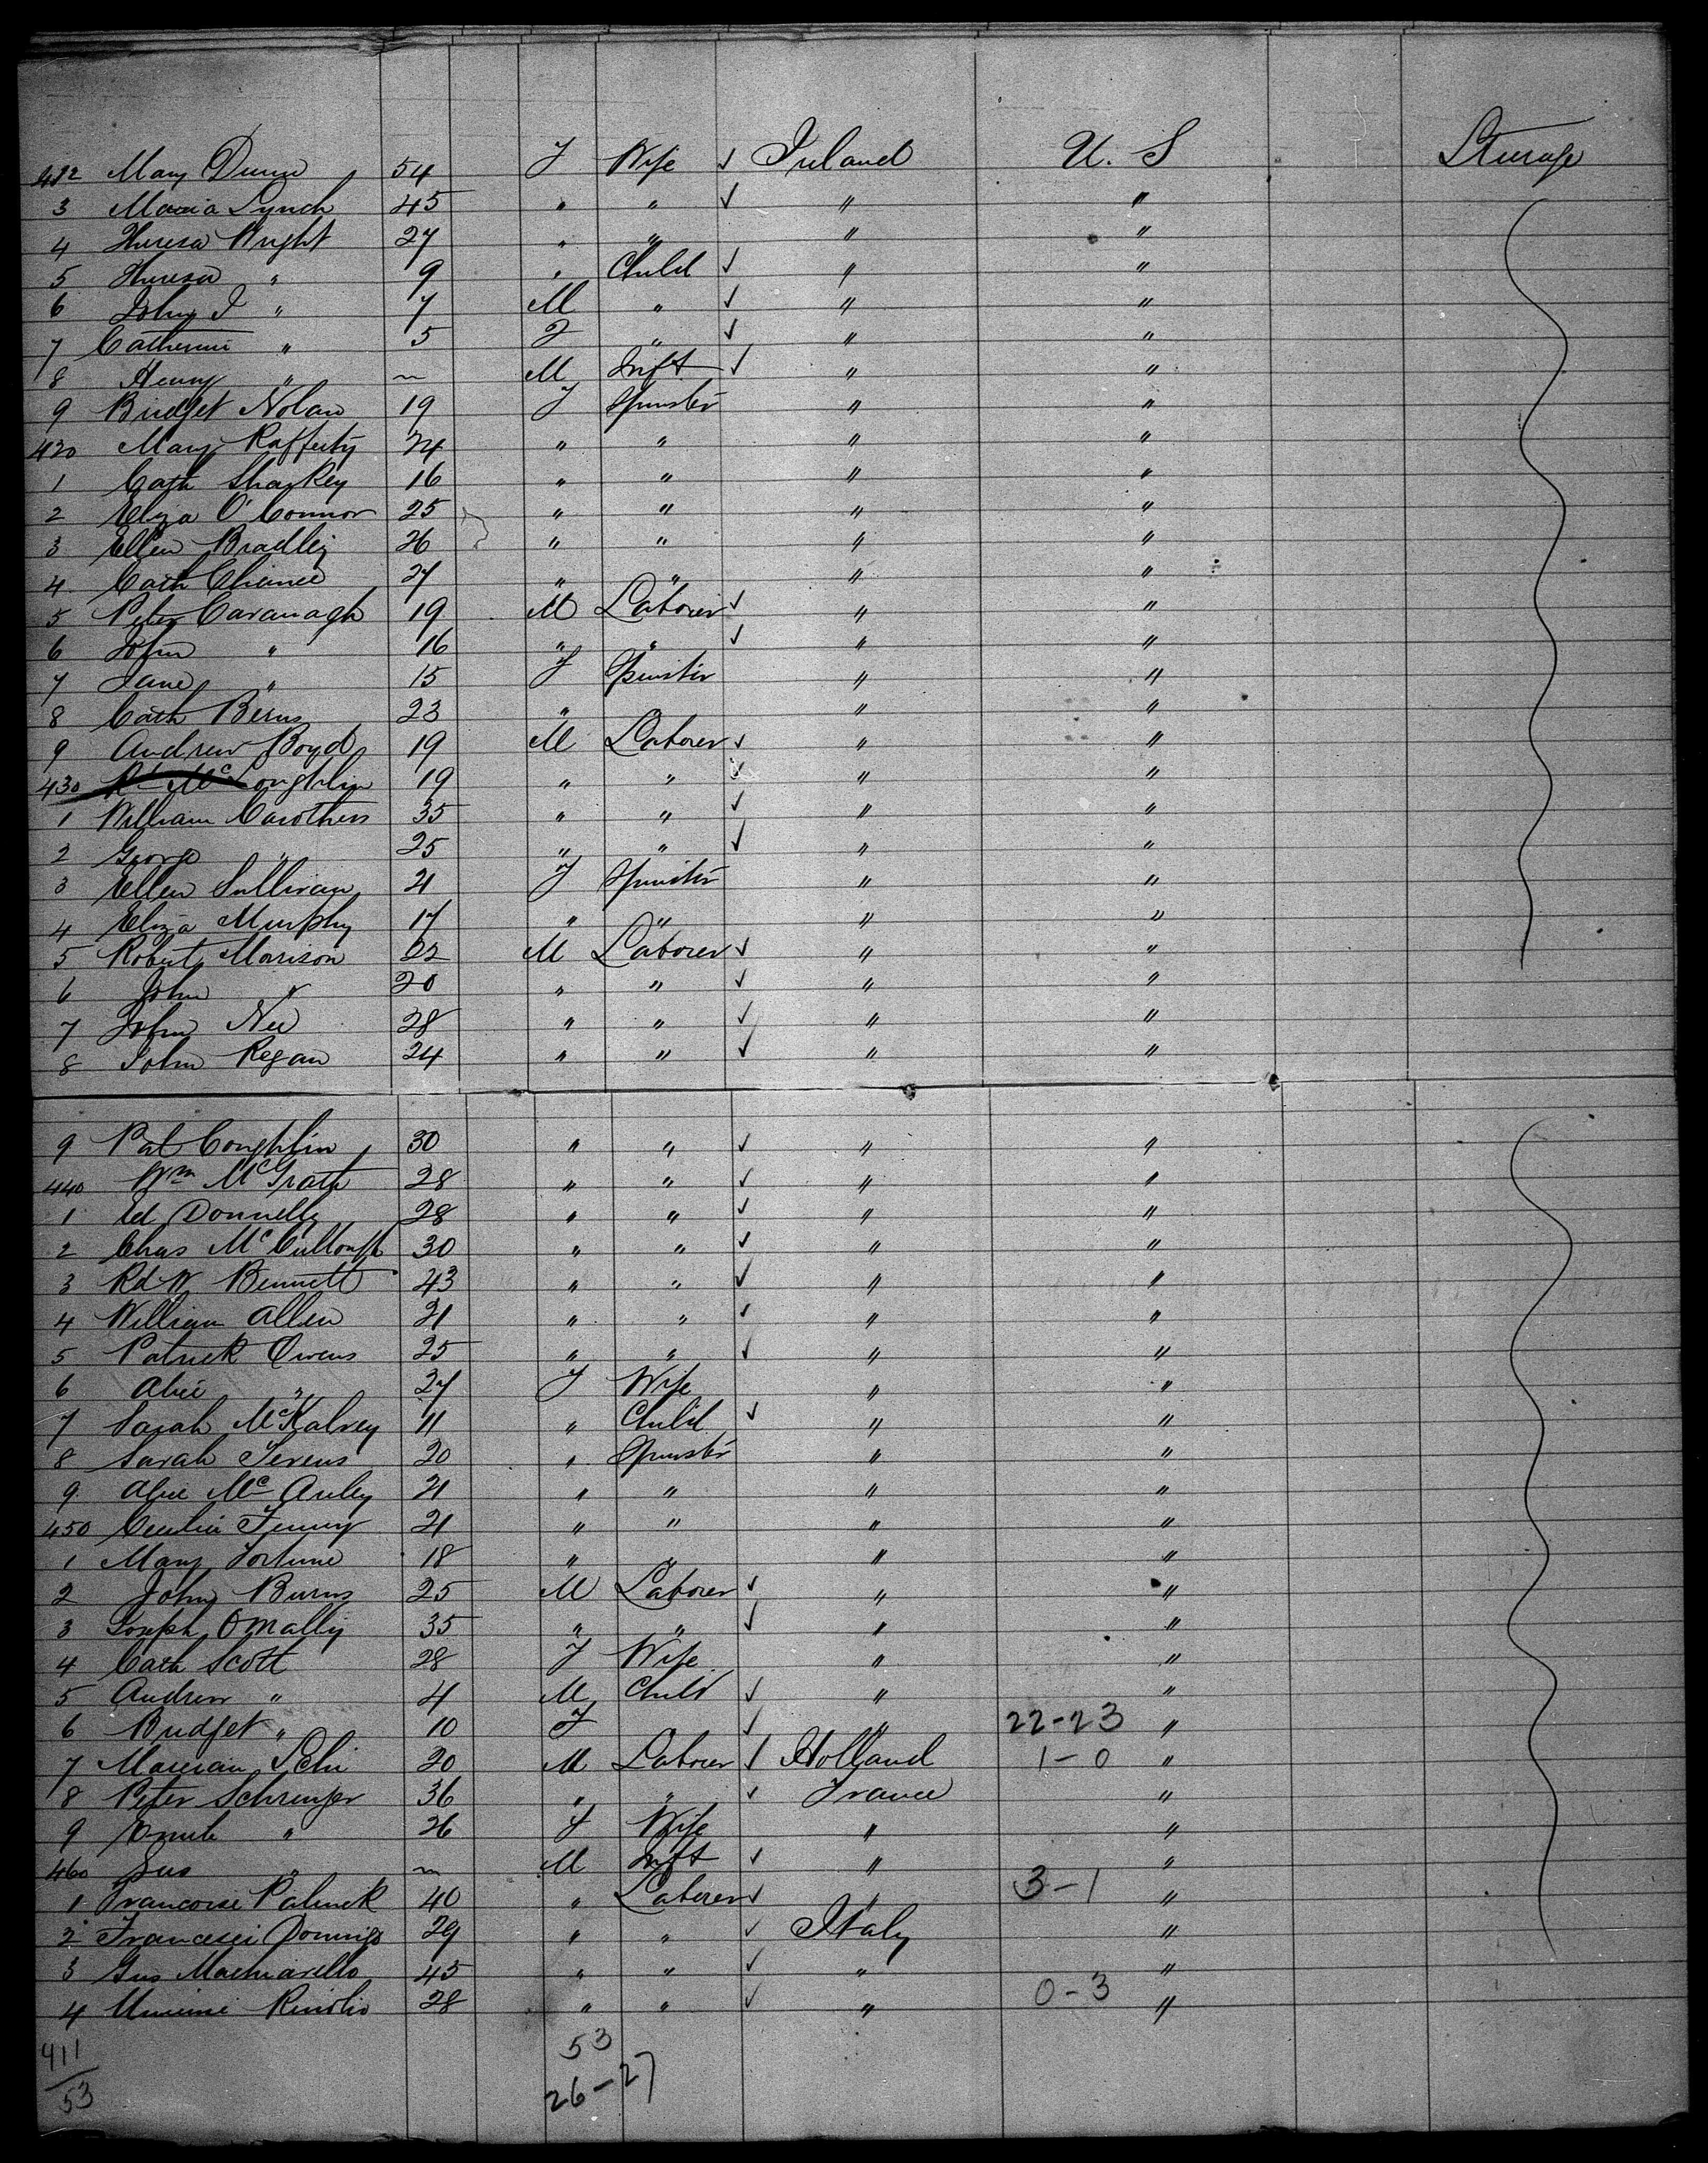 412 Mary Dunne 54 F Wife ✓ Ireland U. S Steerage
3 Maria Lynch 45 " " ✓ " "
4 Theresa Wright 27 " " " "
5 Theresa " 9 " Child ✓ " "
6 John J " 7 M " ✓ " "
7 Catherine " 5 F " ✓ " "
8 Henry " M Inft ✓ " "
9 Bridget Nolan 19 F Spinster " "
420 Mary Rafferty 24 " " " "
1 Cath Sharkey 16 " " " "
2 Eliza O'Connor 25 " " " "
3 Ellen Bradley 26 " " " "
4 Cath 27 " " " "
5 Peter Cavanagh 19 M Laborer ✓ " "
6 John " 16 " " ✓ " "
7 Jane " 15 F Spinster " "
8 Cath Berns 23 " " " "
9 Andrew Boyd 19 M Laborer ✓ " "
430 Rd McLoughlin 19 " " ✓ " "
1 William Carothers 35 " " ✓ " "
2 George " 25 " " ✓ " "
3 Ellen Sullivan 21 F Spinster " "
4 Eliza Murphy 17 " " " "
5 Robert Morison 22 M Laborer ✓ " "
6 John " 20 " " ✓ " "
7 John Nee 28 " " ✓ " "
8 John Regan 24 " " ✓ " "
9 Pat Coughlin 30 " " ✓ " "
440 Wm McGrath 28 " " ✓ " "
1 Ed Donnelly 28 " " ✓ " "
2 Chas McCullough 30 " " ✓ " "
3 Rd W Bennett 43 " " ✓ " "
4 William Allen 21 " " ✓ " "
5 Patrick Owens 25 " " ✓ " "
6 Alice " 27 F Wife " "
7 Sarah McKalvey 11 " Child ✓ " "
8 Sarah 20 " Spinster " "
9 Alice McAuley 21 " " " "
450 Cecelia 21 " " " "
1 Mary Fortune 18 " " " "
2 John Burns 25 M Laborer ✓ " "
3 Joseph OMally 35 " " ✓ " "
4 Cath Scott 28 F Wife " "
5 Andrew " 4 M Child ✓ " "
6 Bridget " 10 F ✓ " 22-23 "
7 20 M Laborer ✓ Holland 1-0 "
8 Peter 36 " " ✓ France "
9 " 26 F Wife " "
460 Gus " M Inft ✓ " "
1 Francoise 40 " Laborer ✓ " 3-1 "
2 Domingo 29 " " ✓ Italy "
3 Gus 45 " " ✓ " "
4 28 " " ✓ " 0-3 "
411 53
53 26-27